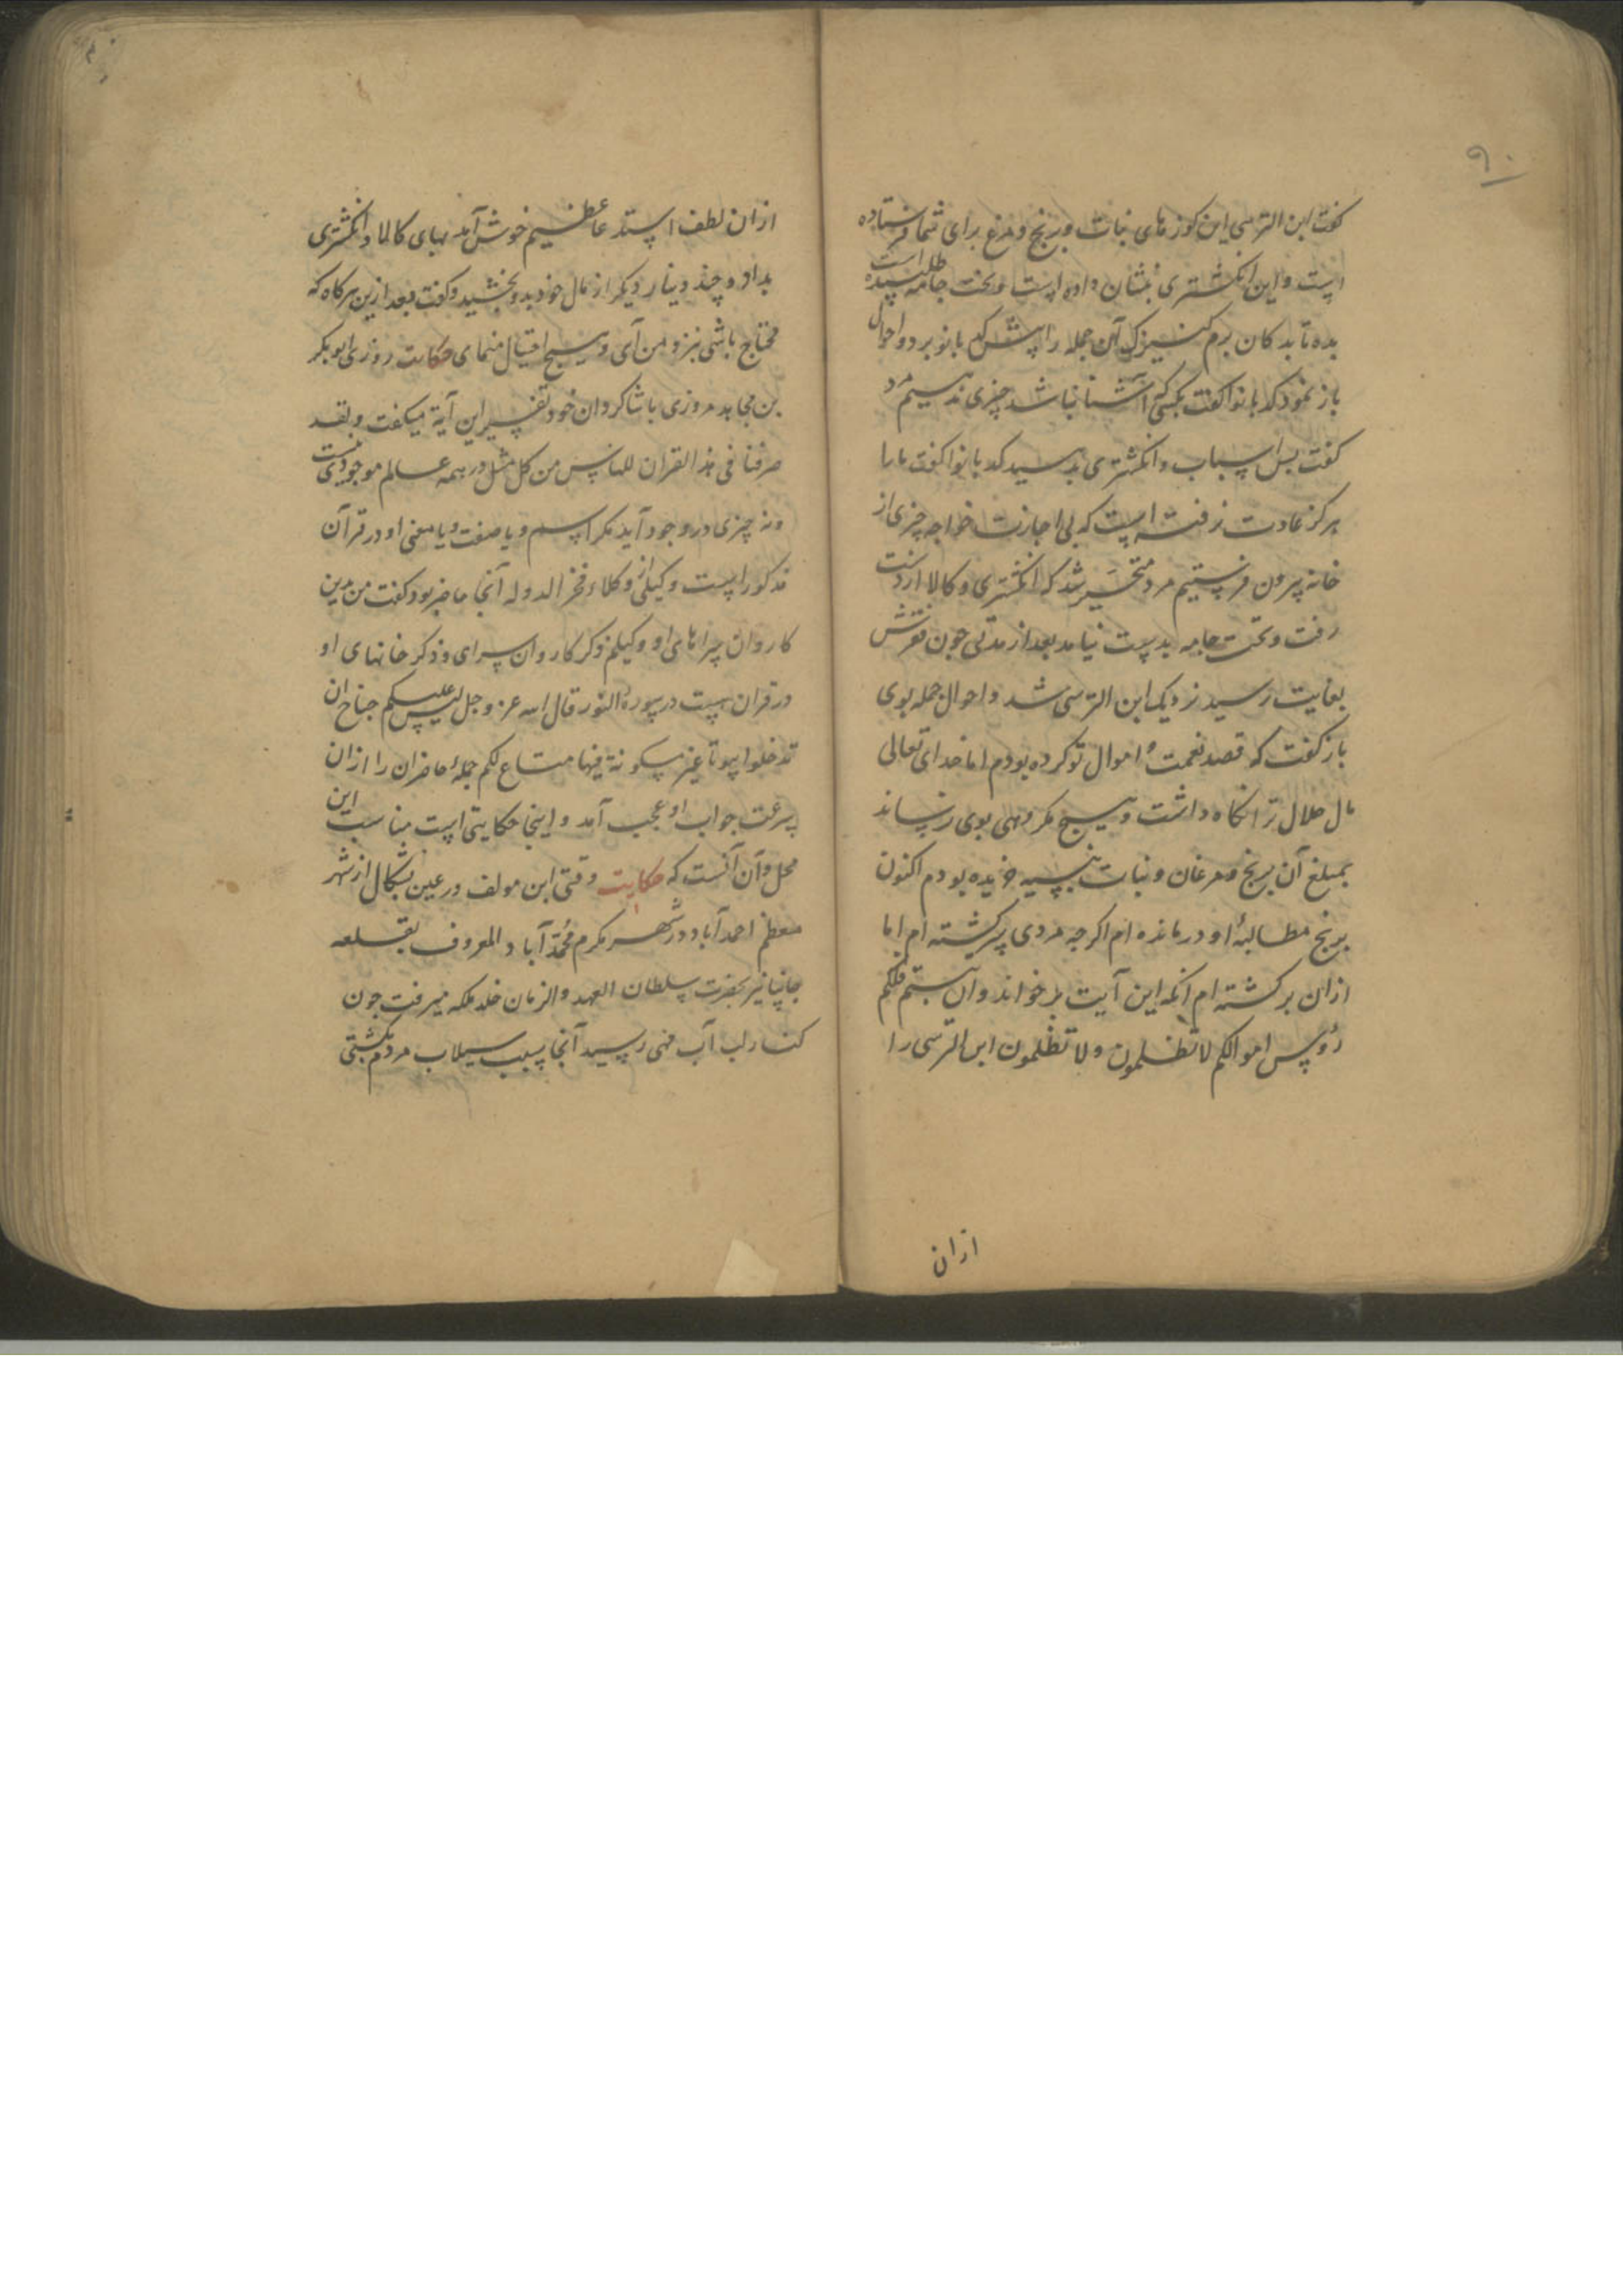 ۹۰
کفت ابن الترسی این کوزهای نبات و برنج و مرغ برای شما فرستاده
است و این انکشتری نشان داده است و تخت جامه سپیده طلب است
بده تا بدکان برم کنیزک آن جمله را پیش کدبانو برد و احوال
باز نمود کدبانو کفت بکسی که آشنا نباشد چیزی ندهیم مرد
کفت بس اسباب و انکشتری بدهید کدبانو کفت ما را
هرکز عادت نرفته است که بی اجازت خواجه چیزی از
خانه بیرون فرستیم مرد متحیر شد که انکشتری و کالا از دست
رفت و تخت جامه بدست نیامد بعد از مدتی چون
بغایت رسید نزدیک ابن الترسی شد و احوال جمله بوی
باز کفت که قصد نعمت و اموال تو کرده بودم اما خدای تعالی
مال حلال ترا نکاه داشت و هیچ مکروهی بوی نرساند
بمبلغ آن برنج و مرغان و نبات بنسیه خریده بودم اکنون
برنج مطالبهٔ او در مانده ام اکرچه مردی سرکشته ام اما
ازان برکشته ام آنکه این آیت برخواند و ان تبتم فلکم
رؤس اموالکم لا تظلمون و لا تظلمون ابن الترسی را
ازان
ازان لطف استدعا عظیم خوش آمد بهای کالا و انکشتری
بداد و چند دینار دیکر از مال خود بدو بخشید و کفت بعد ازین هرکاه که
محتاج باشی بنزد من آی و هیچ احتیال منمای حکایت روزی ابوبکر
بن مجاهد مروزی با شاکردان خود تفسیر این آیة میکفت و لقد
صرفنا فی هذا القران للناس من کل مثل در همه عالم موجودی نیست
و نه چیزی در وجود آید مکر اسم و یا صفت و یا معنی او در قرآن
مذکور است وکیلی از وکلاء فخر الدوله آنجا حاضر بود کفت من
کاروان سراهای او وکیلم ذکر کاروان سرای و ذکر خانهای او
در قران هست در سورة النور قال الله عز و جل لیس علیکم جناح ان
تدخلوا بیوتا غیر مسکونة فیها متاع لکم جملهٔ حاضران را ازان
سرعت جواب او عجب آمد و اینجا حکایتی است مناسب این
محل و آن آنست که حکایت وقتی این مولف در عین بشکال از شهر
معظم احمدآباد در شهر مکرم محمدآباد المعروف بقلعه
جانپانیر بحضرت سلطان العهد و الزمان خلد ملکه میرفت چون
کنار لب آب مهی رسید آنجا بسبب سیلاب مردم بکشتی